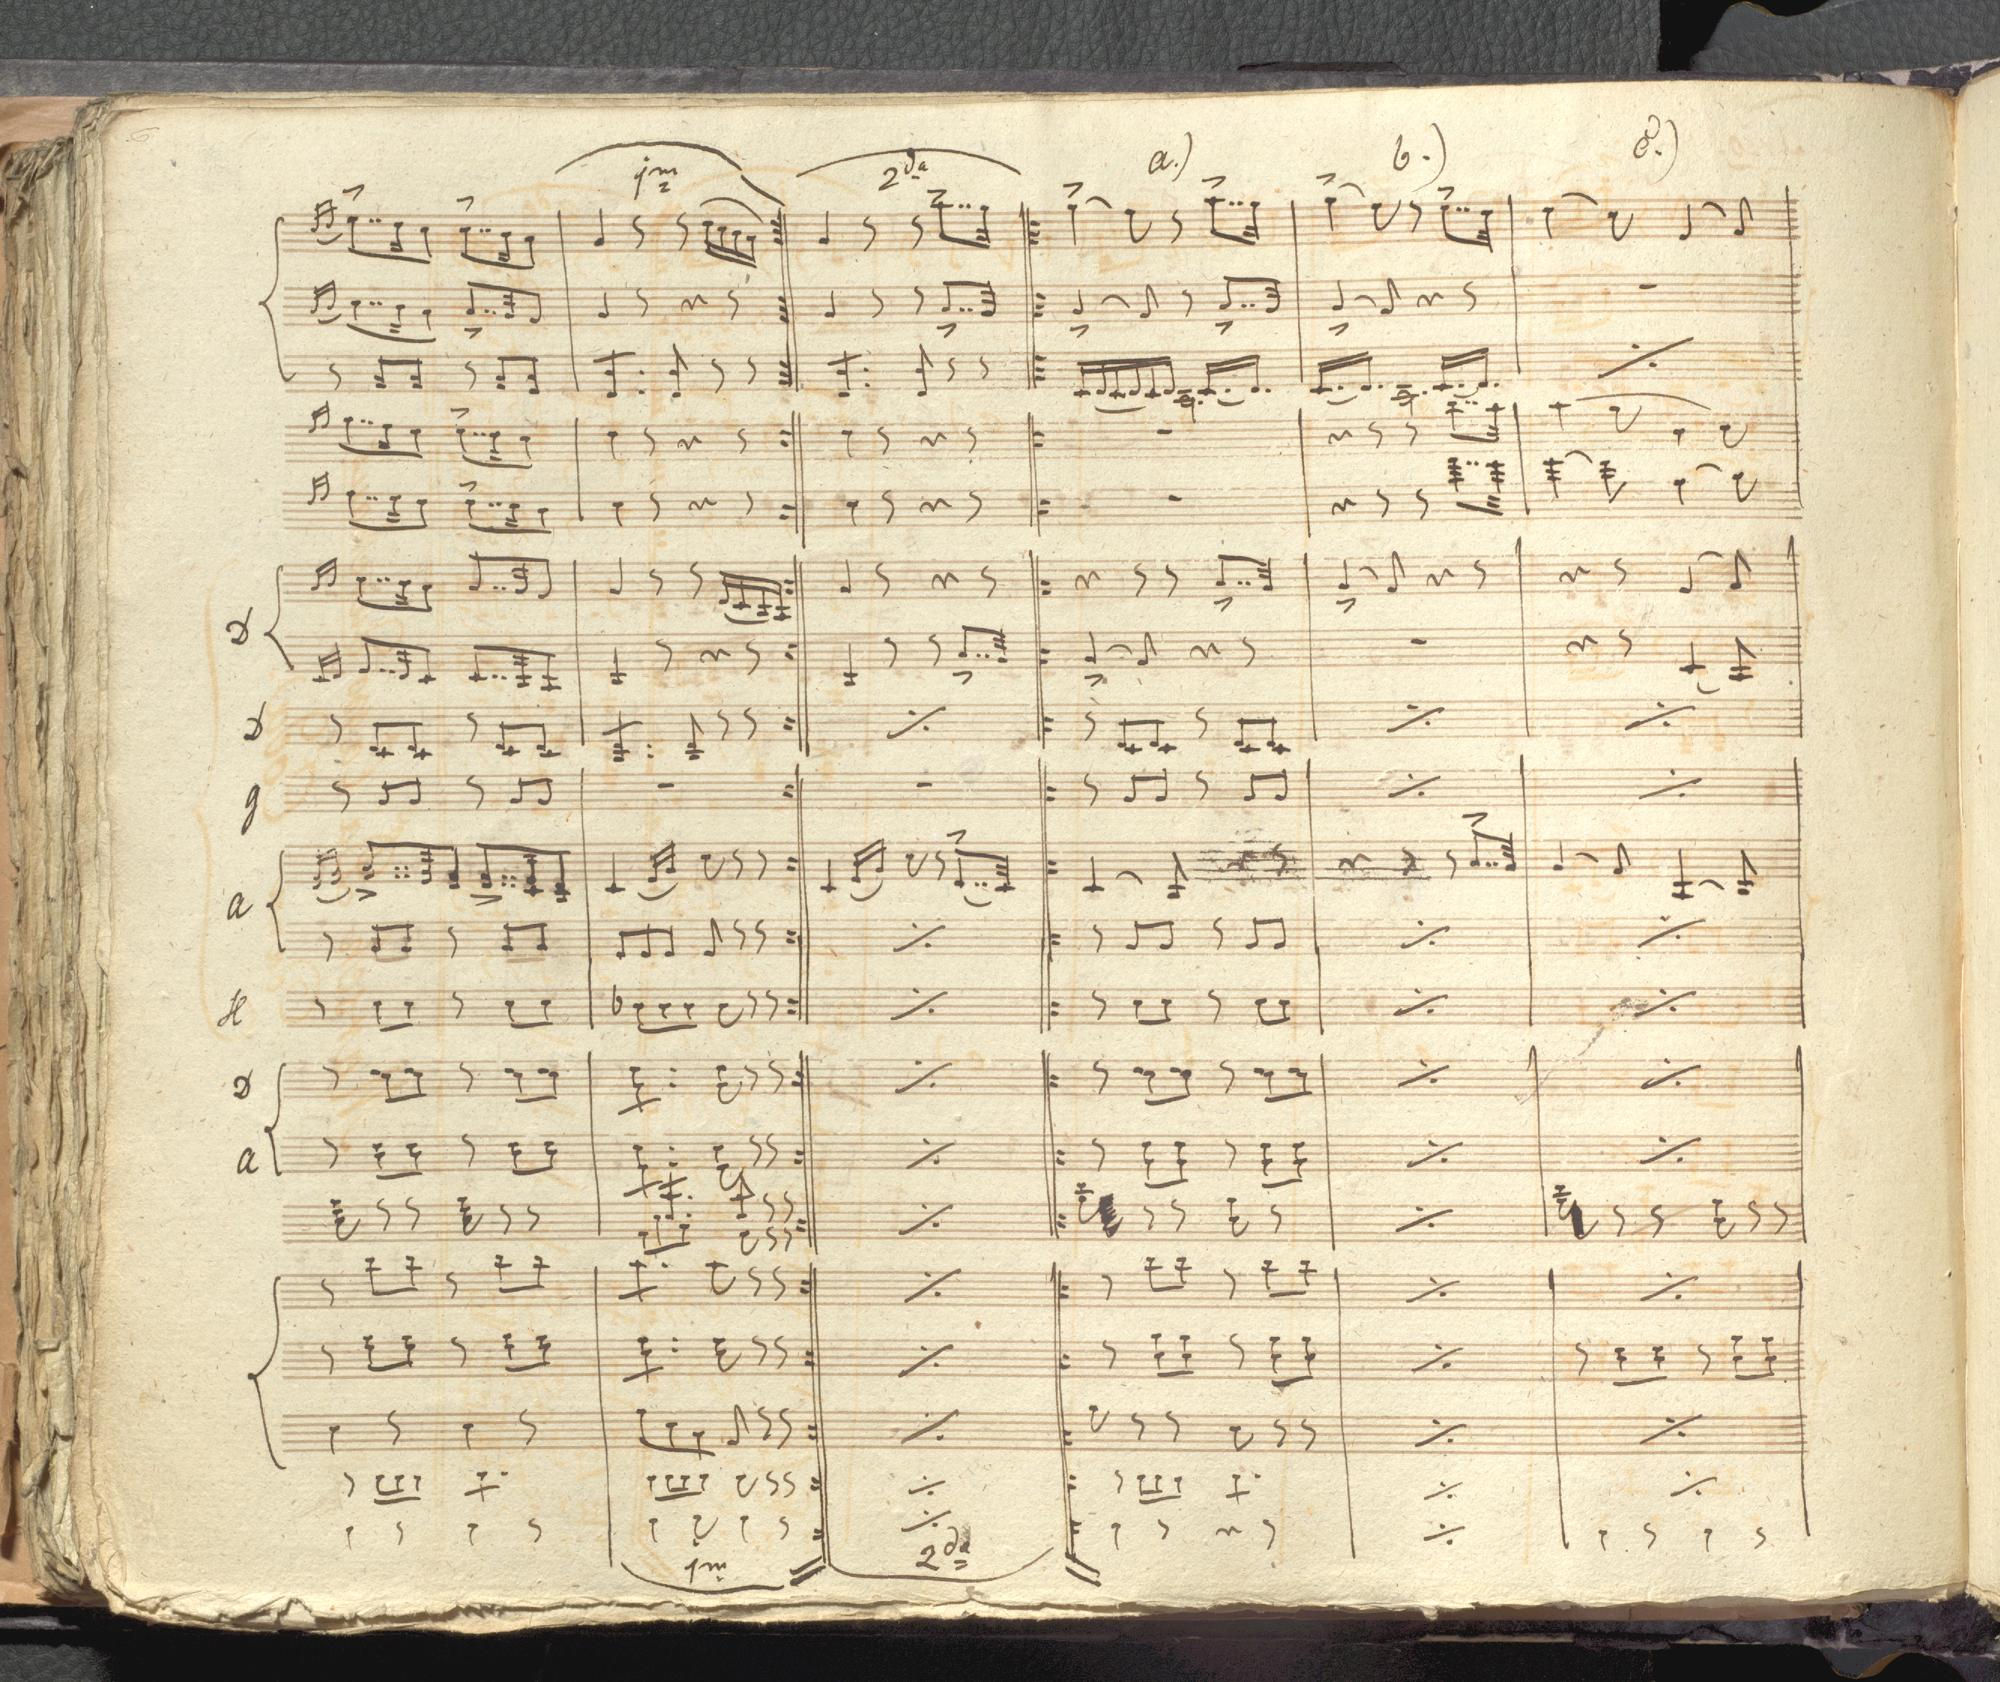 1m 2da a.) b.) c.)
D
D
g
a
H
D
a
1m 2da